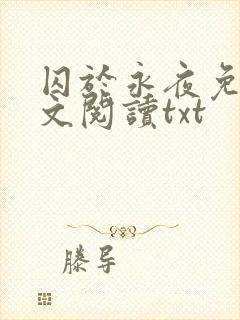 囚於永夜免
文閱讀txt
滕导